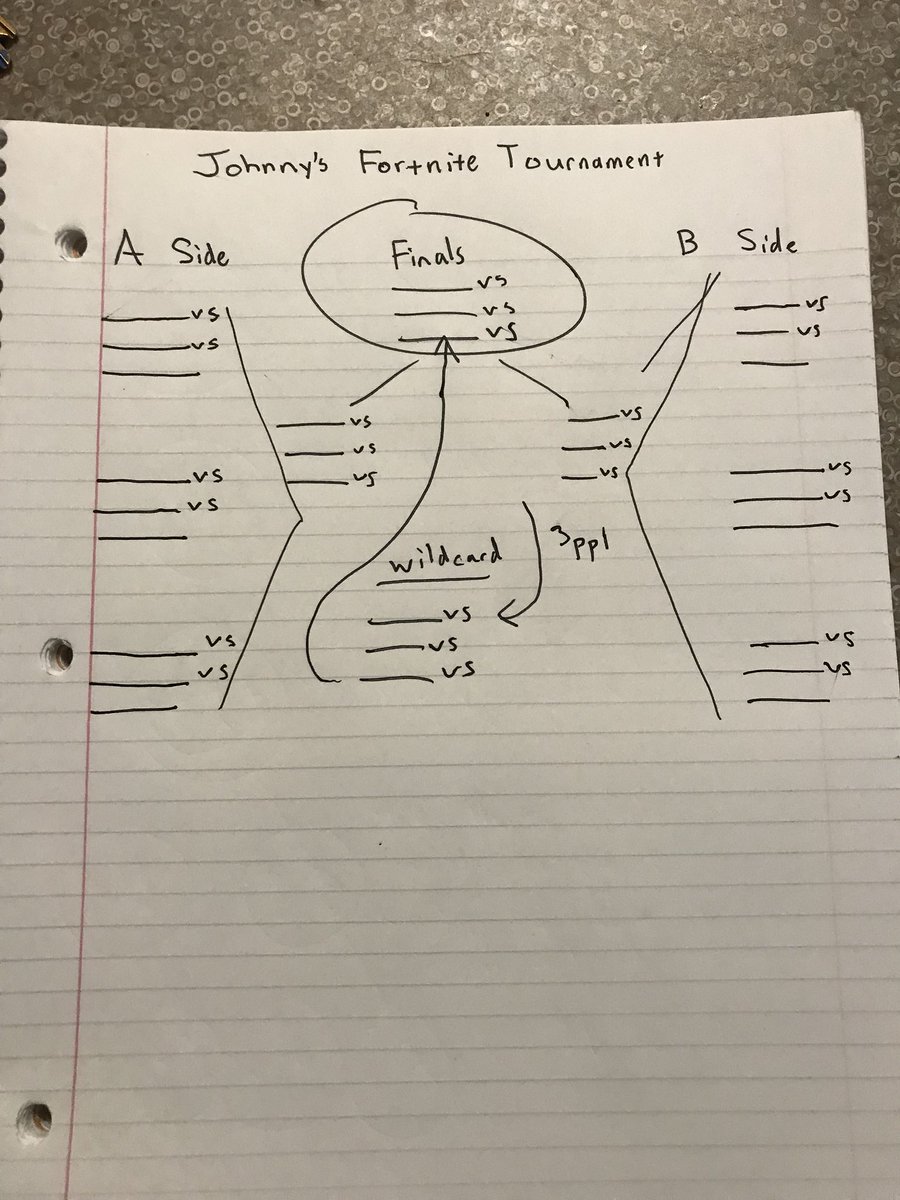 Johnny's Fortnite Tournament
A Side
vs
vs
vs
vs
vs
vs
Finals
vs
vs
vs
vs
vs
vs
vs
vs
vs
3ppl
wildcard
vs
vs
vs
B Side
vs
vs
vs
vs
vs
vs